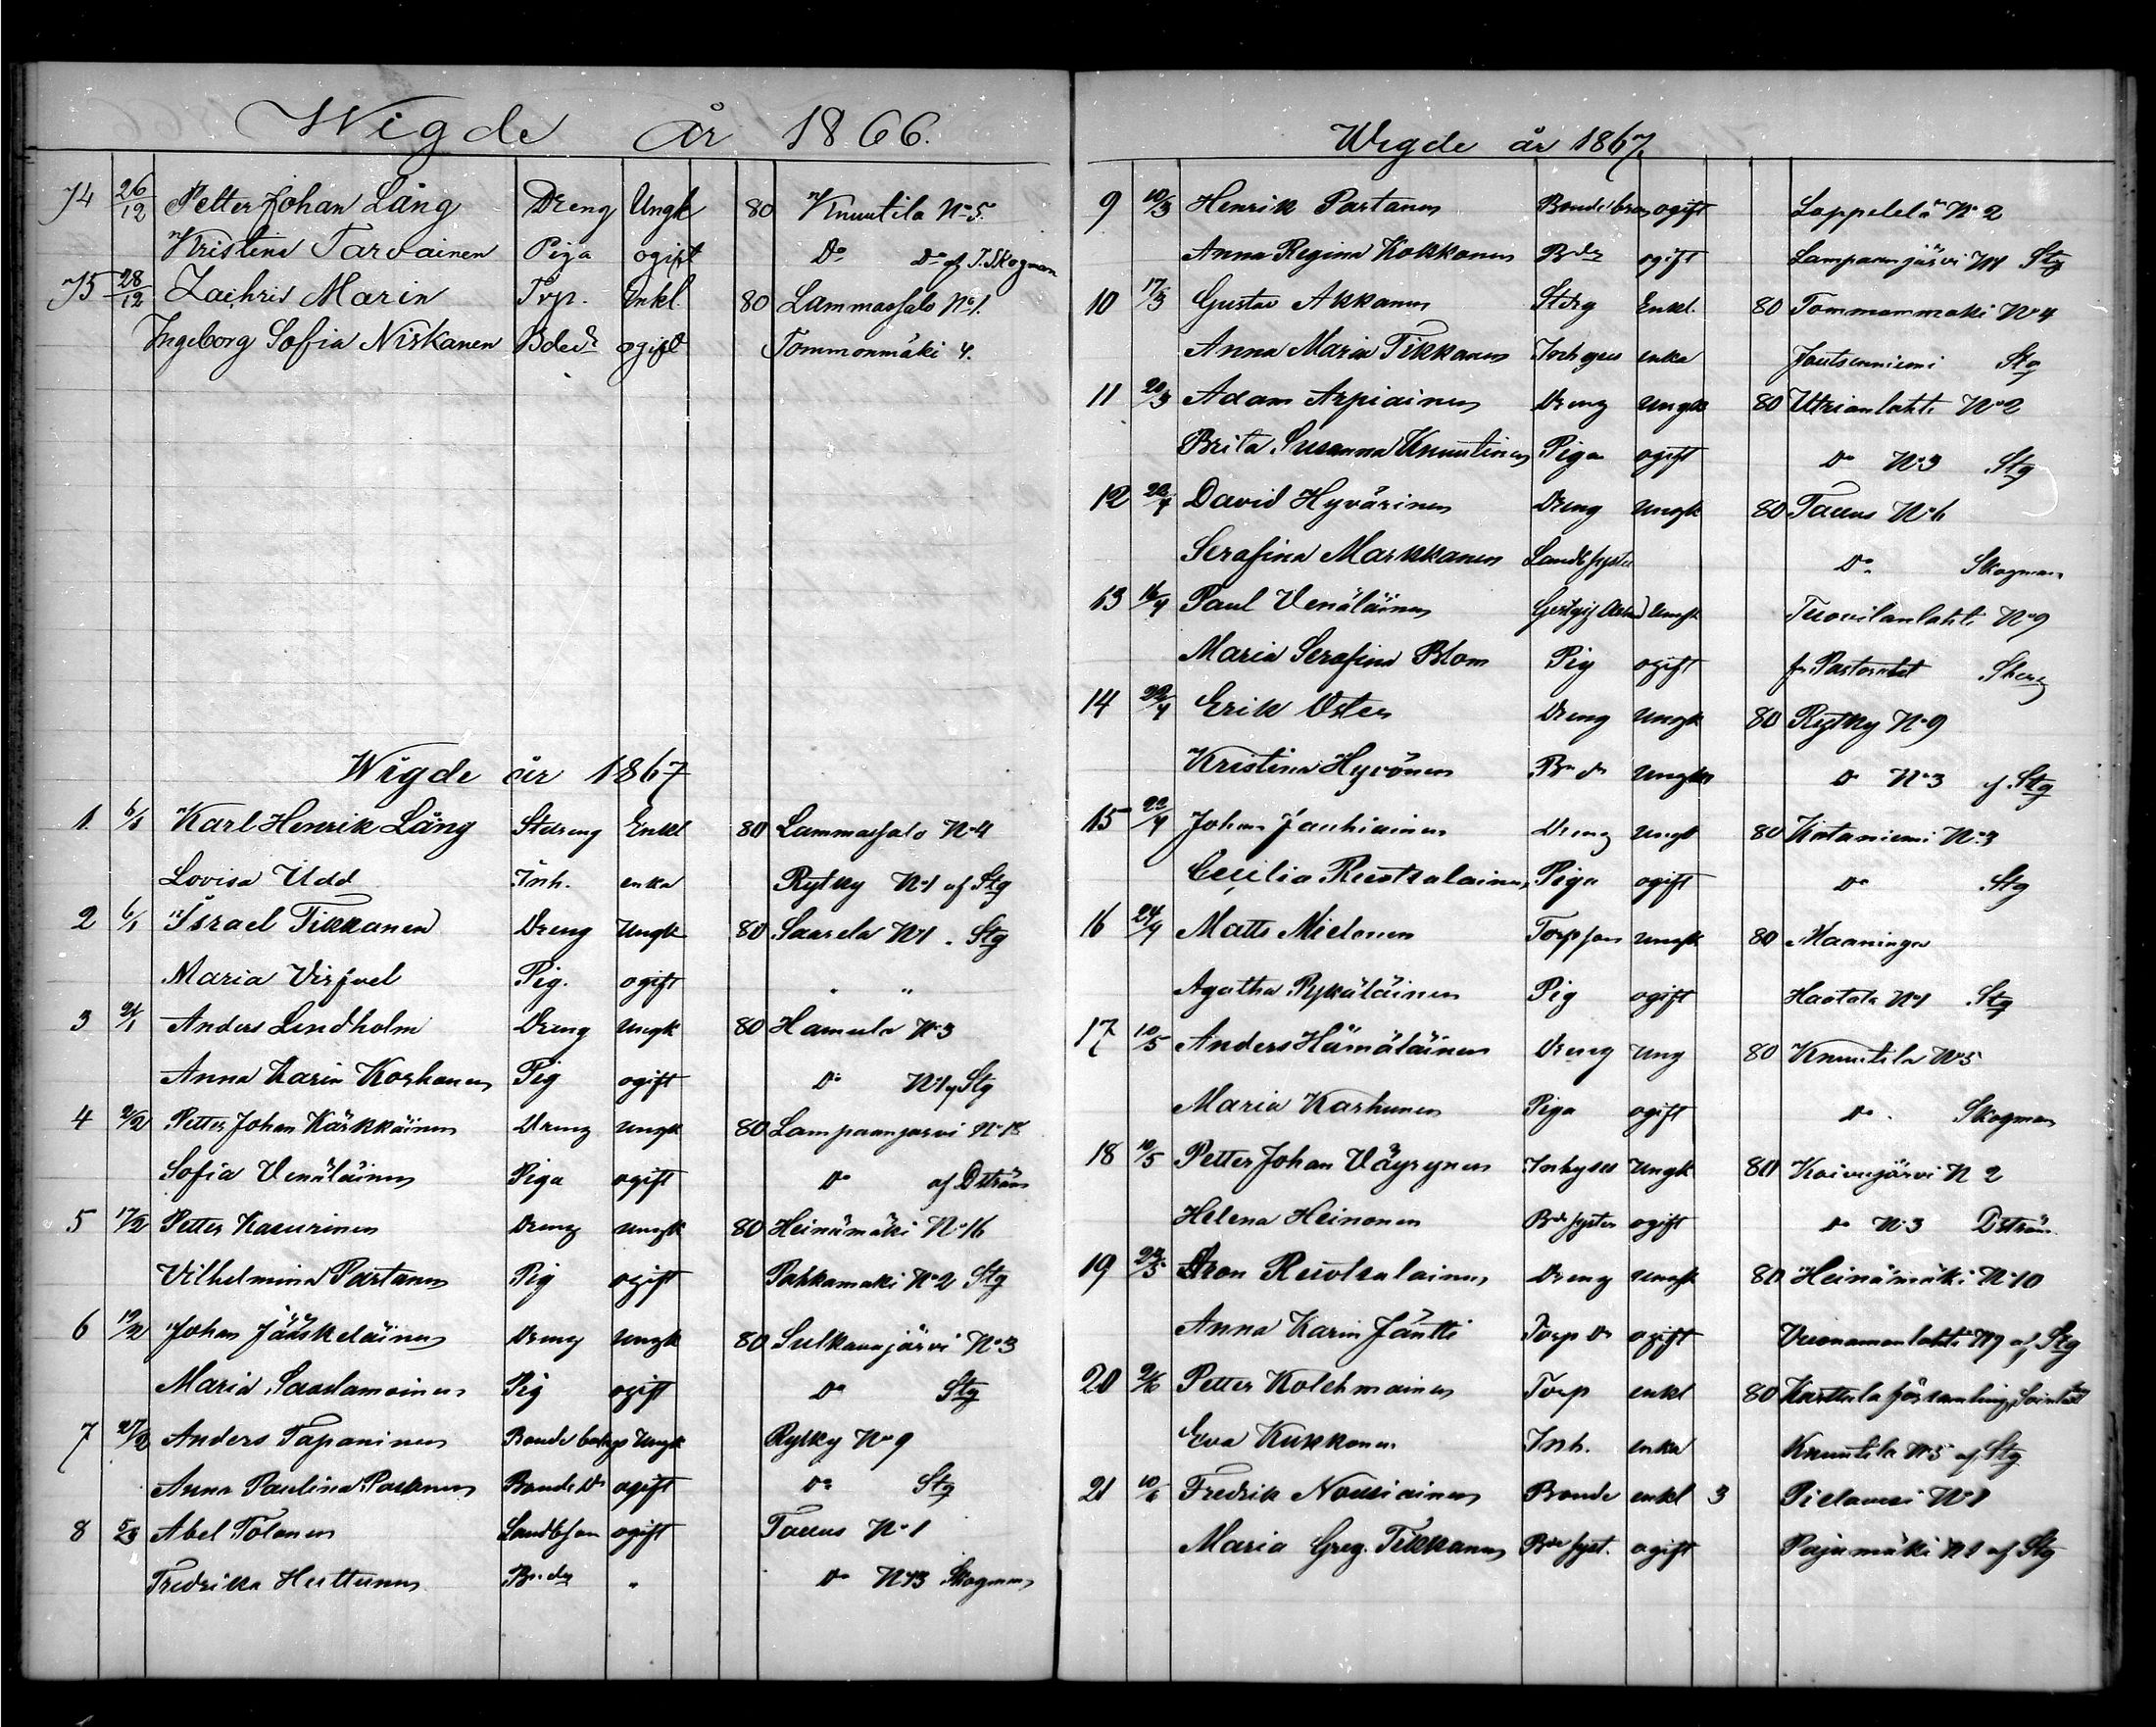 Wigde år 1866.
74 26/12 Petter Johan Lång Dreng Ungk 80 Knuutila No 5.
Kristina Tarvainen Piga ogift Do Do af J. Skogman
75 28/12 Zachris Marin Torp. Enkl. 80 Lammassalo No 1.
Ingeborg Sofia Niskanen Bdedr ogift Tommonmäki 4.
Wigde år 1867
1. 6/1 Karl Henrik Lång Stdreng Enkl 80 Lammassalo No 4
Lovisa Udd Inh. enka Rytky No 1 af Stg
2 6/1 Israel Tikkanen Dreng Ungk 80 Saarela No 1 . Stg
Maria Virfvel Pig. ogift " "
3 Anders Lindholm Dreng Ungk 80 Hamula No 3
Anna Karin Korhonen Pig ogift Do No 1 af Stg
4 2/2 Petter Johan Kärkkäinen Dreng Ungk 80 Lampaanjarvi No 18
Sofia Venäläinen Piga ogift Do af Dström
5 17/2 Petter Kasurinen Dreng Ungk 80 Heinämäki No 16
Vilhelmina Partanen Pig ogift Pahkamaki No 2 Stg
6 Johan Jääskeläinen Dreng Ungk 80 Sulkavajärvi No 3
Maria Saastamoinen Pig ogift Do Stg
7 27/2 Anders Tapaninen Bonde Ungk Rytky No 9
Anna Paulina Bonde Dr ogift Do Stg
8 Abel Tolanen Landbson ogift Tauus No 1
Fredrika Huttunen Bdedr " Do No 13 Skogman
Wigde år 1867.
9 10/3 Henrik Partanen Bonde ogift Lappetelä No 2
Anna Regina Kokkonen Bdr ogift Lampaanjärvi Stg
10 17/3 Gustav Akkanen Stdrg Enkl. 80 Tommonmaki No 4
Anna Maria Tikkanen Inhyses enka Joutsenniemi Stg
11 Adam Arpiainen Dreng Ungk 80 Utrianlahti No 2
Brita Susanna Knuutinen Piga ogift Do No 3 Stg
12 David Hyvärinen Dreng Ungk 80 Tauus No 6
Serafina Markkanen Landbsyster Do Skogman
13 Paul Venäläinen Ungk Tuovilanlahti No 9
Maria Serafina Blom Pig ogift fr. Pastoratet
14 22/4 Erik Oster Dreng Ungk 80 Rytky No 9
Kristina Hyvönen Bdr Do No 3 af Stg
15 22/4 Johan Jauhiainen Dreng Ungk 80 Kataniemi No 3
Cecilia Ruotsalainen Piga ogift Do Stg
16 24/4 Matts Mielonen Torpson Ungk 80 Maaninga
Agatha Pykäläinen Pig ogift Haatala No 1 Stg
17 10/5 Anders Hämäläinen Dreng Ung 80 Knuutila No 5
Maria Karhunen Piga ogift Do Skogman
18 10/5 Petter Johan Väyrynen Inhyses Ungk 80 Koivujärvi N 2
Helena Heinonen Bdrsyster ogift Do No 3 Dström
19 Aron Ruotsalainen Dreng Ungk 80 Heinämäki No 10
Anna Karin Jäntti Torp Dr ogift Vuonamonlahti No 9 af Stg
20 2/6 Petter Kolehmainen Torp enkl 80 Karttula församling
Eva Kukkonen Inh. enka Knuutila No 5 af Stg
21 10/6 Fredrik Nousiainen Bonde enkl 3 Pielavesi No 1
Maria Greg. Tikkanen Bdesyst. ogift Pajumäki No 2 af Stg